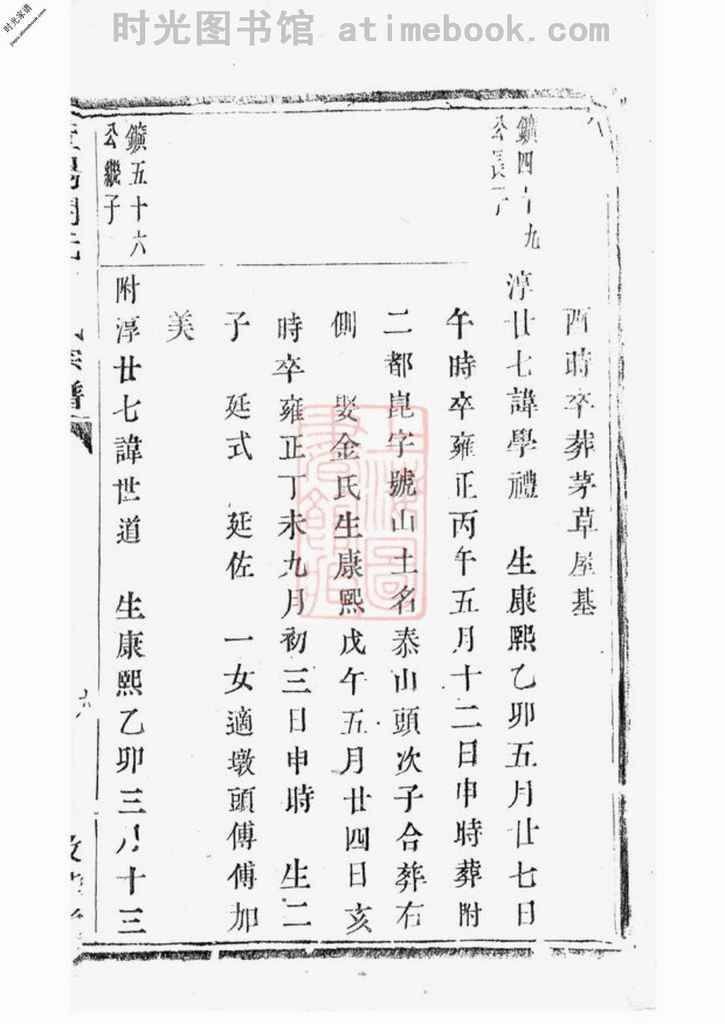 时光图书馆 atimebook.com
时光家谱
酉時卒葬茅草屋基
鑛四十九
公長子
淳廿七諱學禮 生康熙乙卯五月廿七日
午時卒雍正丙午五月十二日申時葬附
二都崑字號山土名泰山頭次子合葬右
側 娶金氏生康熙戊午五月廿四日亥
時卒雍正丁未九月初三日申時 生二
子 延式 延佐 一女適墩頭傅傅加
美
鑛五十六
公繼子
附淳廿七諱世道 生康熙乙卯三八十三
宗譜